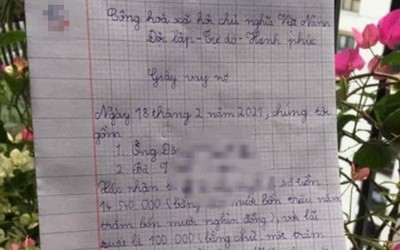 Cộng hoà xã hội chủ nghĩa Việt Nam
Độc lập - Tự do - Hạnh phúc
Giấy vay nợ
Ngày 18 tháng 2 năm 2021, chúng tôi
gồm
1. Ông Đ
2. Bà T
Xác nhận số tiền
14.540.000 (bằng mười bốn triệu năm
trăm bốn mươi nghìn đồng), với lãi
suất là 100.000 (bằng chữ: một trăm